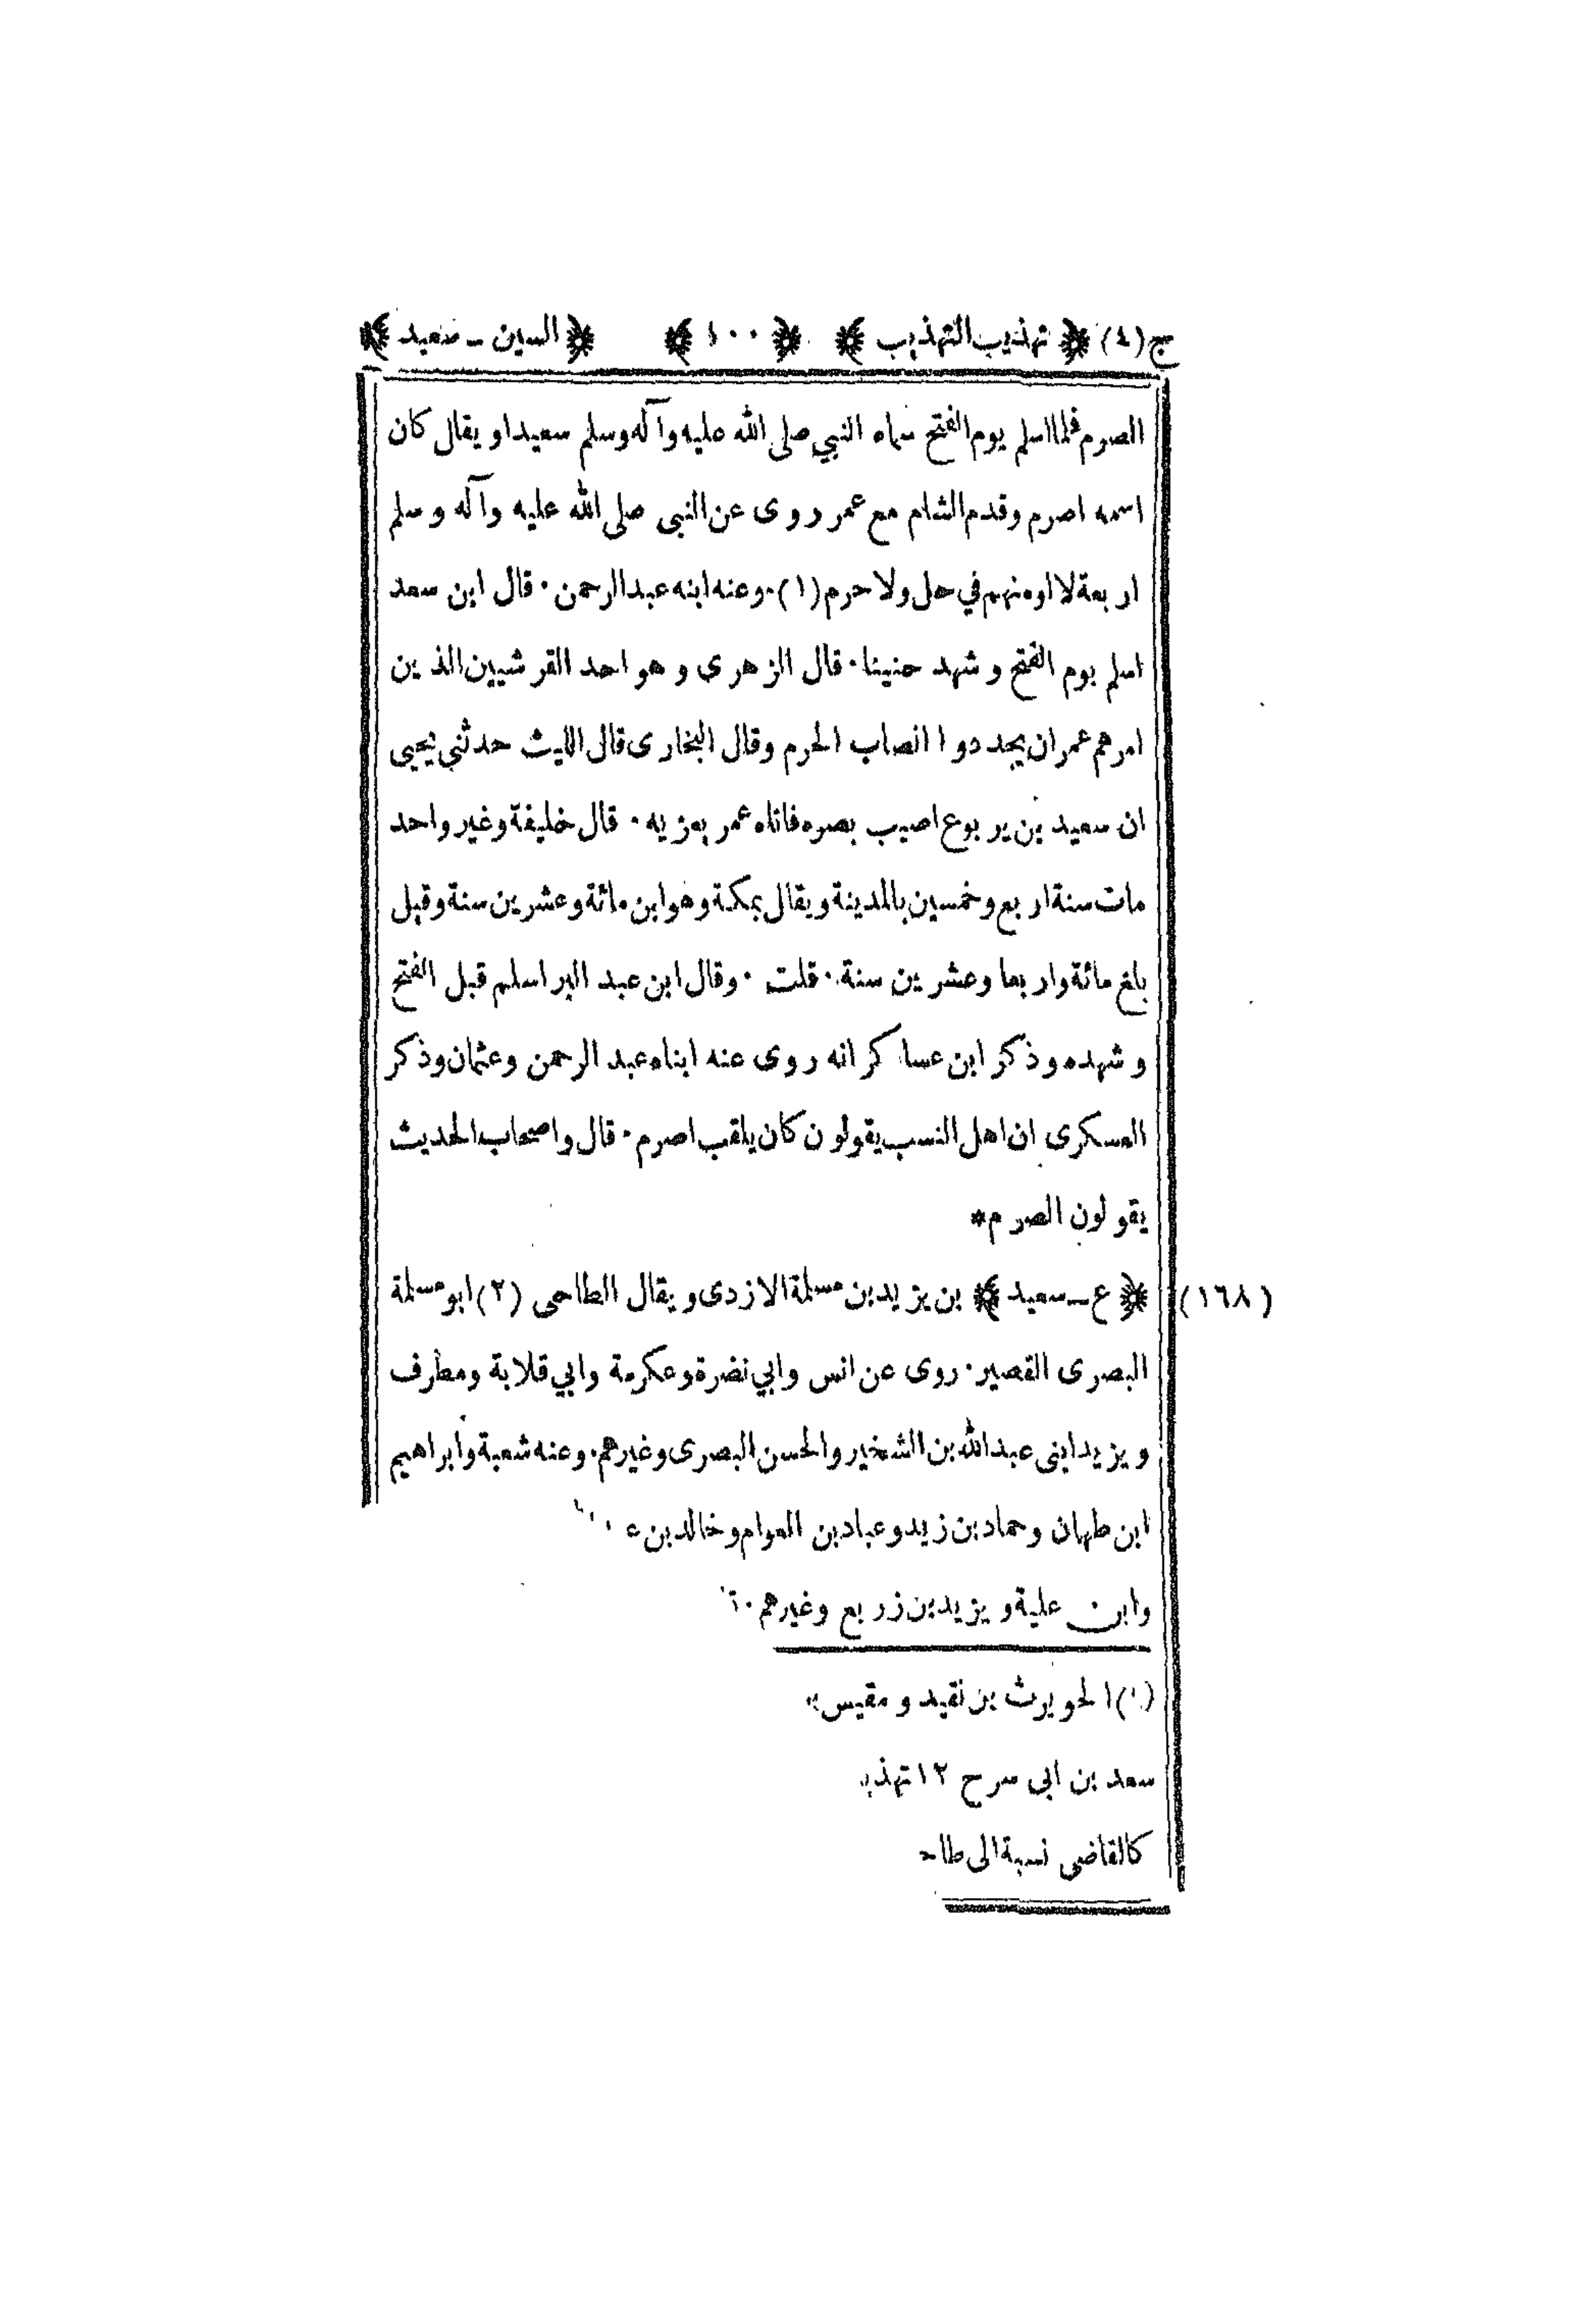 ج (٤) ﴿ تهذيب التهذيب ﴾ ﴿ ١٠٠ ﴾ ﴿ السين ـ سعيد ﴾
الصرم فلما اسلم يوم الفتح سماه النبي صلى الله عليه وآله وسلم سعيدا ويقال كان
اسمه اصرم وقدم الشام مع عمر روى عن النبي صلى الله عليه وآله وسلم
اربعة لا اومنهم في حل ولا حرم (١)٠ وعنه ابنه عبد الرحمن ٠ قال ابن سعد
اسلم يوم الفتح وشهد حنينا ٠ قال الزهرى وهو احد القرشيين الذين
امرهم عمر ان يجددوا انصاب الحرم وقال البخارى قال الليث حدثني يحيى
ان سعيد بن يربوع اصيب بصره فاتاه عمر يعزيه ٠ قال خليفة وغير واحد
مات سنة اربع وخمسين بالمدينة ويقال بمكة وهو ابن مائة وعشرين سنة وقيل
بلغ مائة واربعا وعشرين سنة ٠ قلت ٠ وقال ابن عبد البر اسلم قبل الفتح
وشهده وذكر ابن عساكر انه روى عنه ابناه عبد الرحمن وعثمان وذكر
العسكرى ان اهل النسب يقولون كان يلقب اصرم ٠ قال واصحاب الحديث
يقولون الصرم *
(١٦٨) ﴿ ع ـ سعيد ﴾ بن يزيد بن مسلمة الازدى ويقال الطاحى (٢) ابو مسلمة
البصرى القصير ٠ روى عن انس وابي نضرة وعكرمة وابي قلابة ومطرف
ويزيد ابنى عبد الله بن الشخير والحسن البصرى وغيرهم ٠ وعنه شعبة وابراهيم
ابن طهمان وحماد بن زيد وعباد بن العوام وخالد بن
وابن علية ويزيد بن زريع وغيرهم ٠
(١) الحويرث بن نقيد ومقيس
سعد بن ابى سرح ١٢
كالقاضى نسبة الى